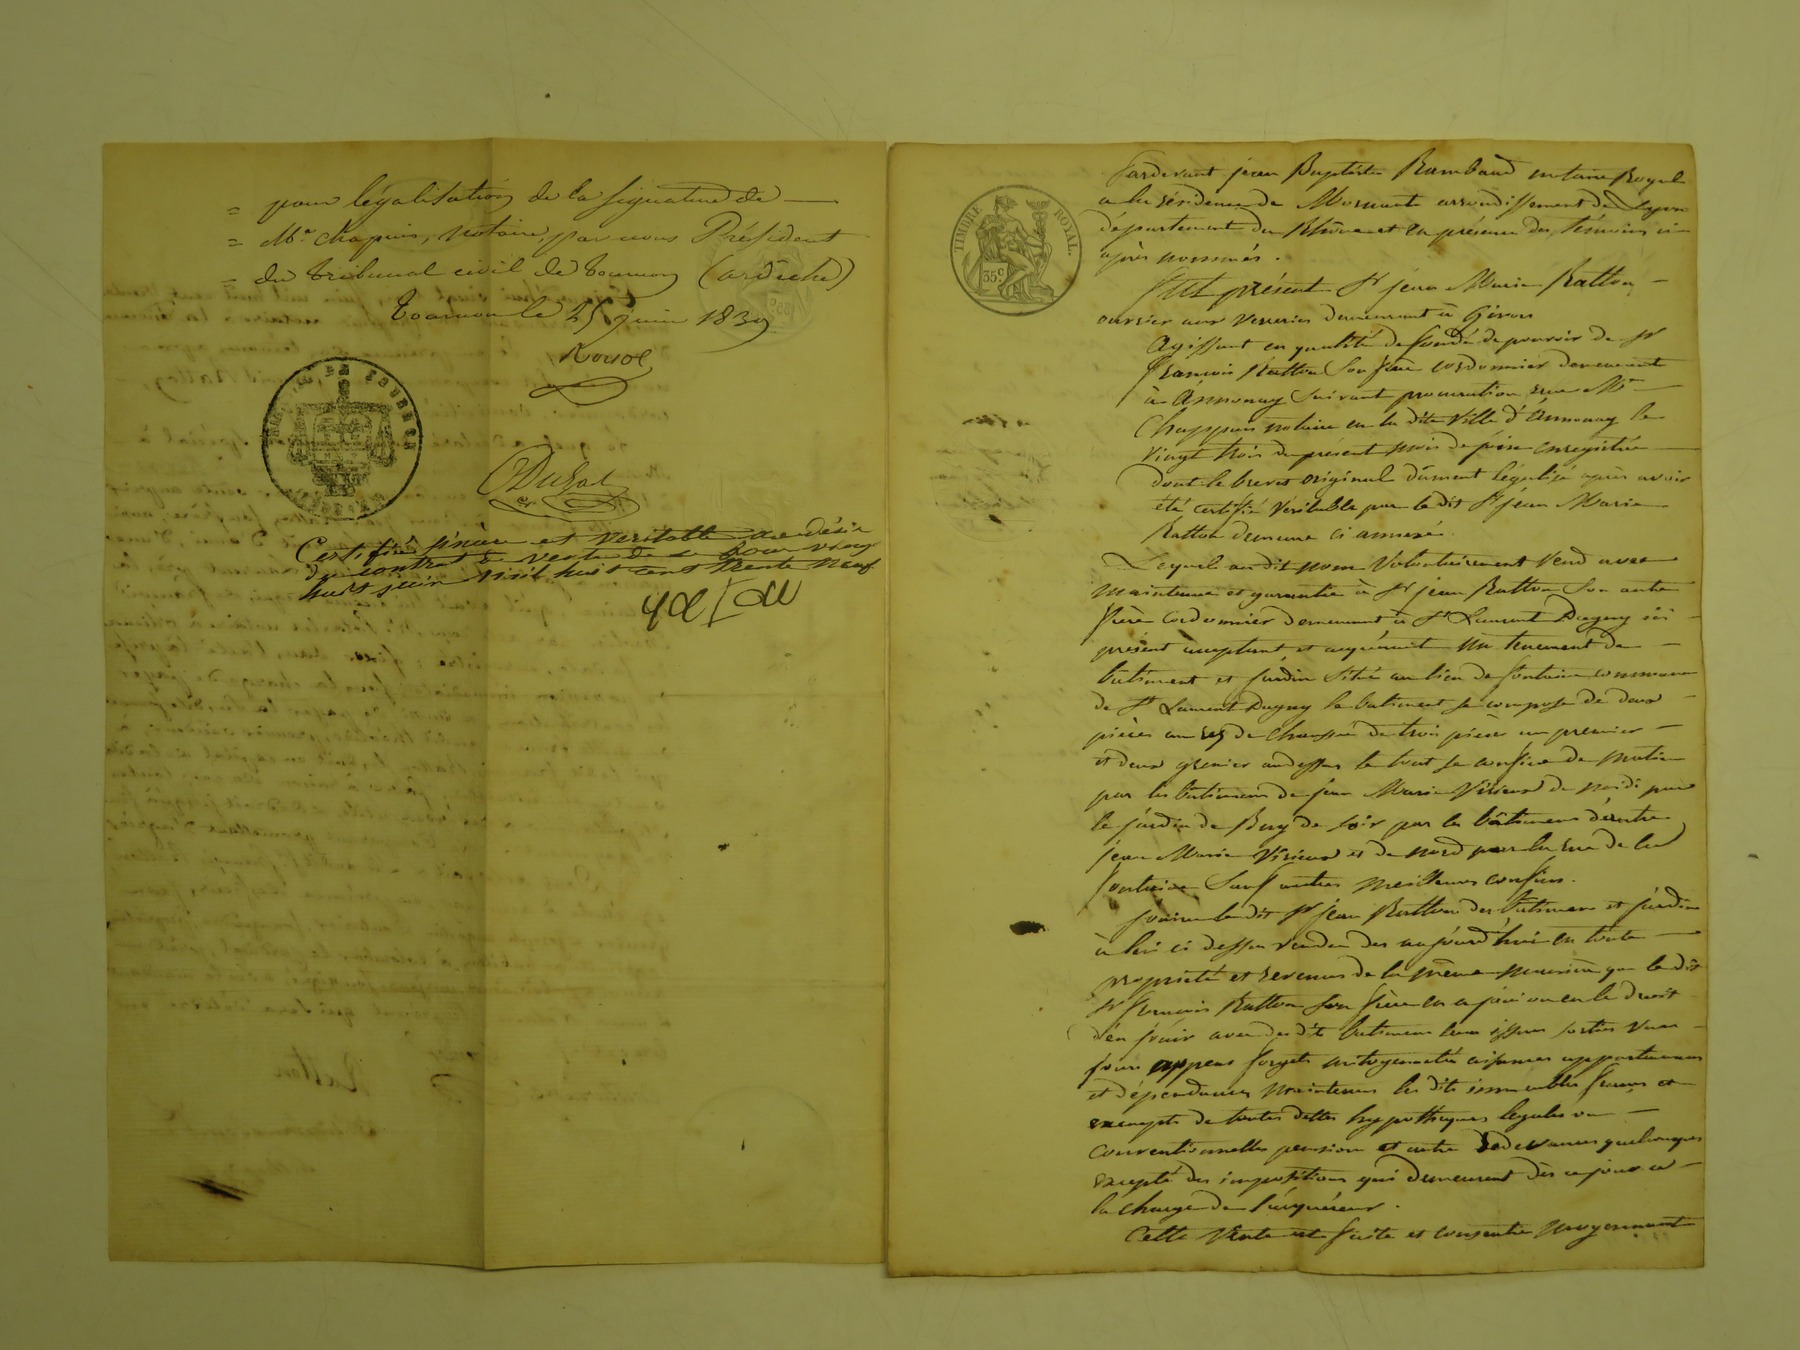 = pour légalisation de la signature de
= Me chapuis, notaire, par nous Président
= du tribunal civil de tournon (ardèche)
Tournon le 25 juin 1839
Certifié sincère et veritable au désir
du contrat de vente de ce jour vingt
huit juin mil huit cent trente neuf
TIMBRE ROYAL.
35c
Pardevant jean Baptiste Rambaud notaire Royal
à la résidence de Mornant arrondissement de Lyon
département du Rhône et en présence des témoins ci
après nommés.
Fut présent Sr jean Marie Ratton
ouvrier aux verreries demeurant à Givors
Agissant en qualité de fondé de pouvoir de Sr
françois Ratton Son frère cordonnier demeurant
à Annonay Suivant procuration reçue Me
Chappuis notaire en la dite Ville d'Annonay le
vingt trois du présent mois de juin enregistrée
dont le brevet original dûment légalisé après avoir
été certifié Véritable par le dit Sr jean Marie
Ratton demeure ci annexé
Lequel au dit nom Volontairement Vend avec
maintenue et garantie à Sr jean Ratton Son autre
frère Cordonnier demeurant à St Laurent Dagny ici
présent acceptant et acquérant un tenement de
bâtiment et jardin Situé au lieu de fontaine commune
de St Laurent Dagny le batiment se compose de deux
pièces au rez de chaussée de trois pièces au premier
et deux grenier audessus le tout se confine de matin
par les bâtimens de jean Marie Virieux de midi par
le jardin de Bury de soir par les bâtimens d'autre
jean Marie Virieux et de nord par la rue de la
fontaine Sauf autres meilleurs confins.
Jouira le dit Sr jean Ratton des bâtimens et jardin
à lui ci dessus vendu des aujourd'hui en toute
propriété et revenus de la même manière que le dit
Sr françois Ratton Son frère en a joui ou eu le droit
d'en jouir avec des dits batimens leurs issues sorties vues
jours appens forgets mitoyennetés aisances appartenances
et dépendances Maintenus les dits immeubles francs et
exempts de toutes dettes hypothèques légales ou
conventionnelles pension et autre Redevances quelconques
excepté des impositions qui demeurent dès ce jour à
la charge de l'acquéreur.
Cette Vente est faite et consentie moyennant